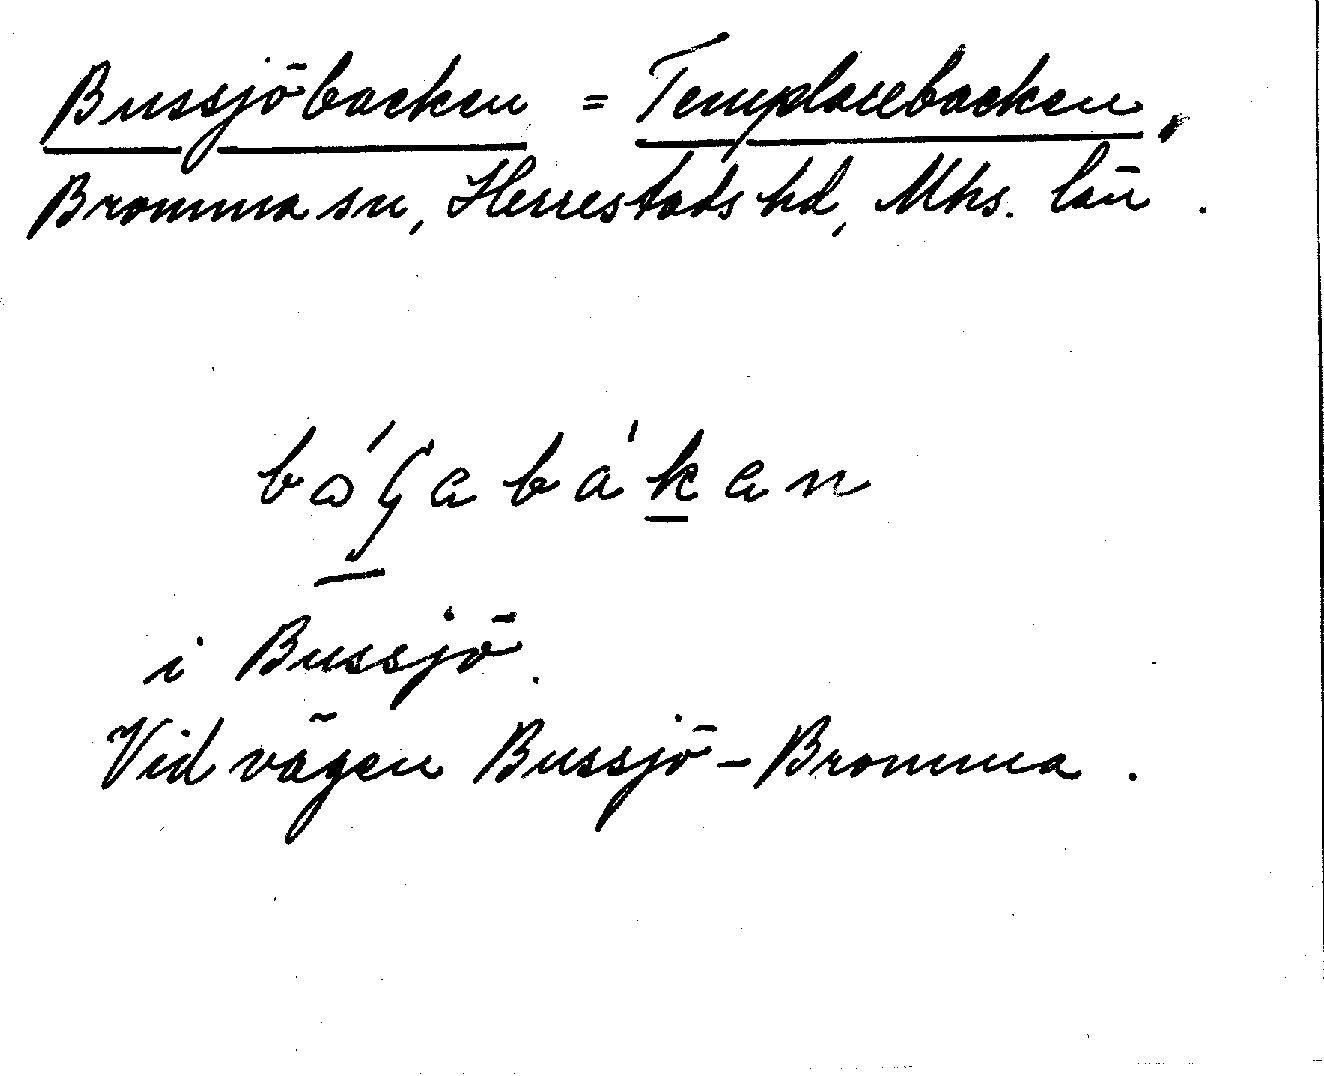 Bussjöbacken = Templarebacken,
Bromma sn, Herrestads hd, Mhs. län.
i Bussjö.
Vid vägen Bussjö - Bromma.